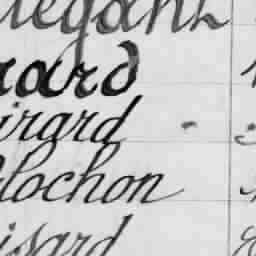 legant
rard
irard -
lochon
isard